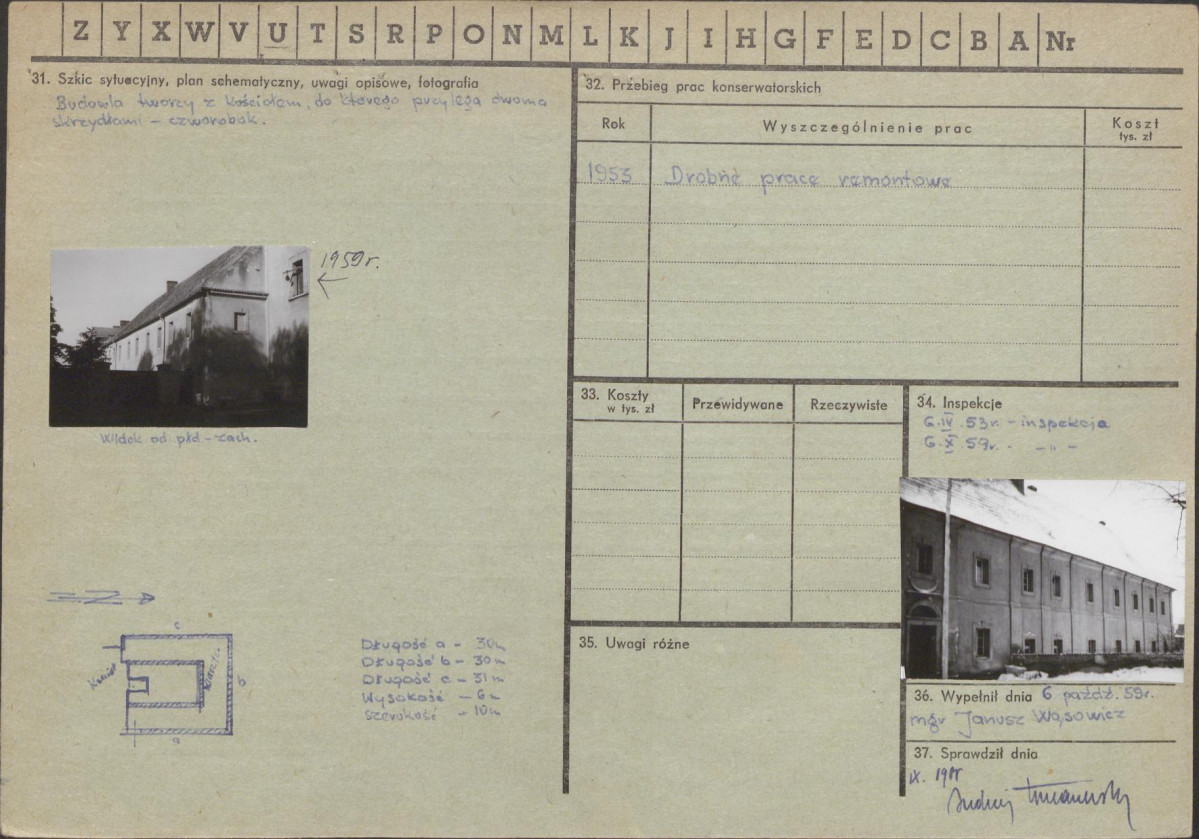 Z Y X W V U T S R P O N M L K J I H G F E D C B A Nr
31. Szkic sytuacyjny, plan schematyczny, uwagi opisowe, fotografia
Budowla tworzy z kościołem, do którego przylega dwoma
skrzydłami – czworobok.
1959r.
Widok od płd-zach.
c
b
a
Długość a – 30m
Długość b – 30m
Długość c – 31m
Wysokość – 6m
Szerokość – 10m
32. Przebieg prac konserwatorskich
Rok Wyszczególnienie prac Koszt
tys. zł
1953 Drobne prace remontowe
33. Koszty
w tys. zł
Przewidywane Rzeczywiste
34. Inspekcje
6.IV.53r. – inspekcja
6.X.59r. - – " –
35. Uwagi różne
36. Wypełnił dnia 6 paźdź. 59r.
mgr Janusz Wąsowicz
37. Sprawdził dnia
IX.
Andrzej